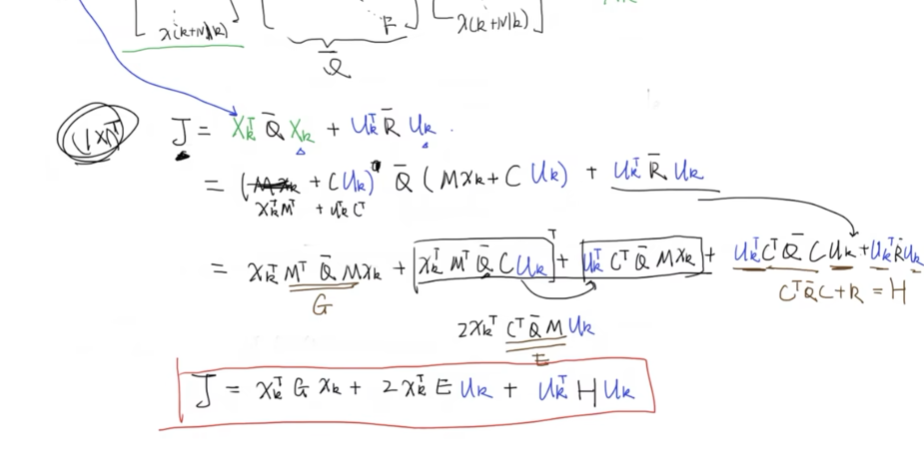 x(k+N|k) F x(k+N|k)
Q̄
(1×n)ᵀ J = Xₖᵀ Q̄ Xₖ + Uₖᵀ R̄ Uₖ .
= ( + C Uₖ)ᵀ Q̄ (Mxₖ + C Uₖ) + Uₖᵀ R̄ Uₖ
xₖᵀMᵀ + UₖᵀCᵀ
= xₖᵀ Mᵀ Q̄ Mxₖ + xₖᵀ Mᵀ Q̄ C Uₖ ᵀ + Uₖᵀ Cᵀ Q̄ Mxₖ + UₖᵀCᵀ Q̄ C Uₖ + UₖᵀR̄Uₖ
G CᵀQ̄C+R = H
2xₖᵀ CᵀQ̄M Uₖ
E
J = xₖᵀ G xₖ + 2xₖᵀ E Uₖ + Uₖᵀ H Uₖ